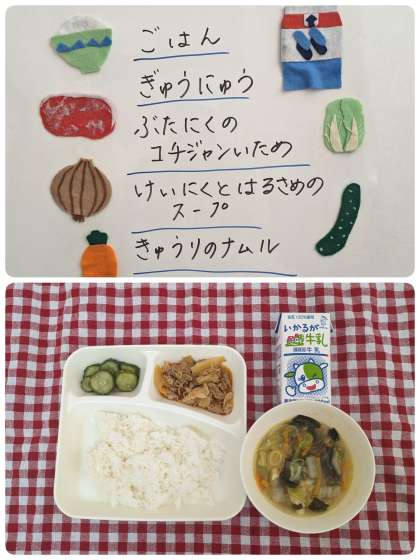 ごはん
ぎゅうにゅう
ぶたにくの
コチジャンいため
けいにくとはるさめの
スープ
きゅうりのナムル
いかるが
牛乳